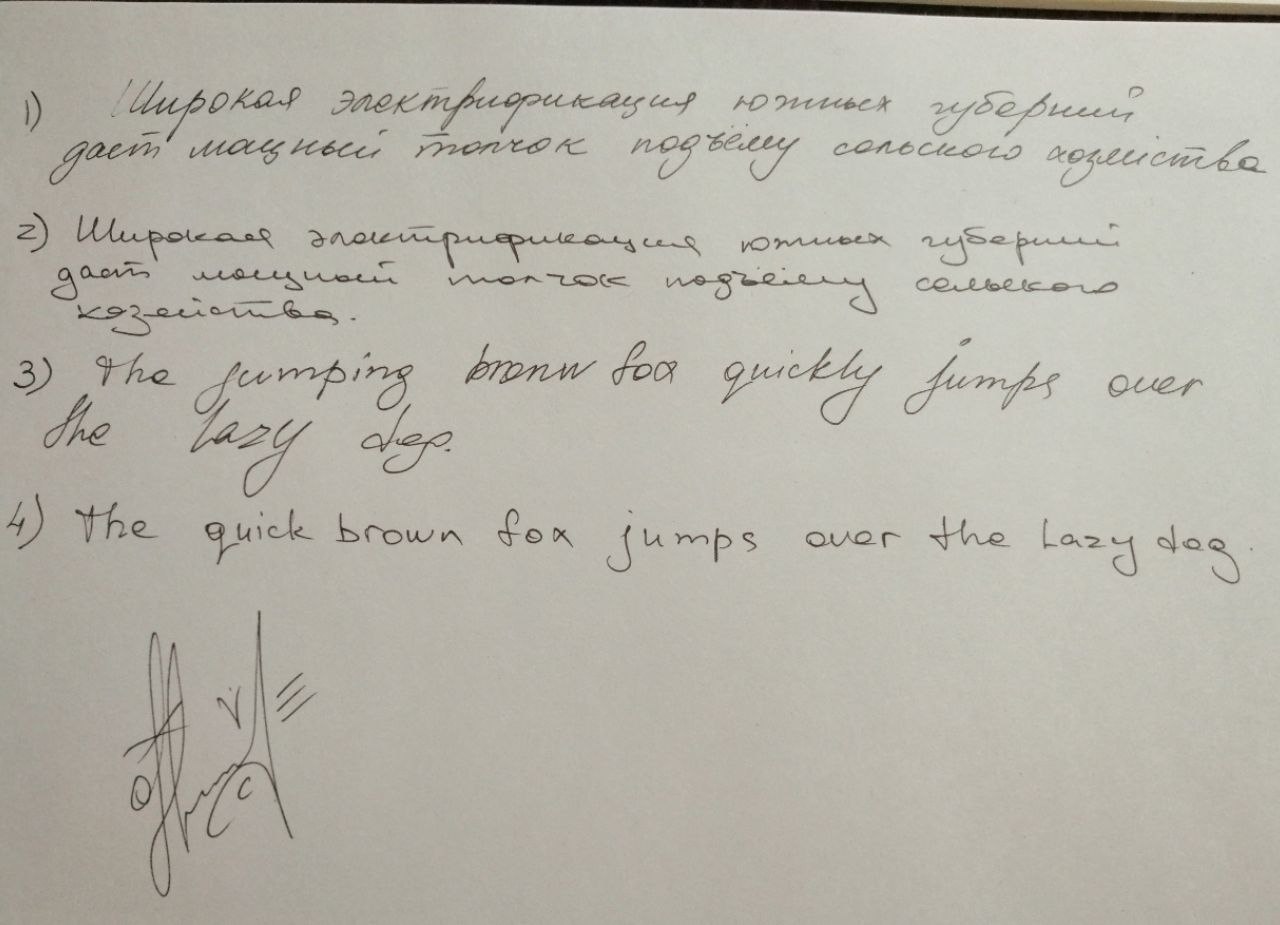 1) Широкая электрификация южных губерний
даст мощный толчок подъёму сельского хозяйства
2) Широкая электрификация южных губерний
даст мощный толчок подъёму сельского
хозяйства.
3) The jumping brown fox quickly jumps over
the lazy dog.
4) The quick brown fox jumps over the lazy dog.